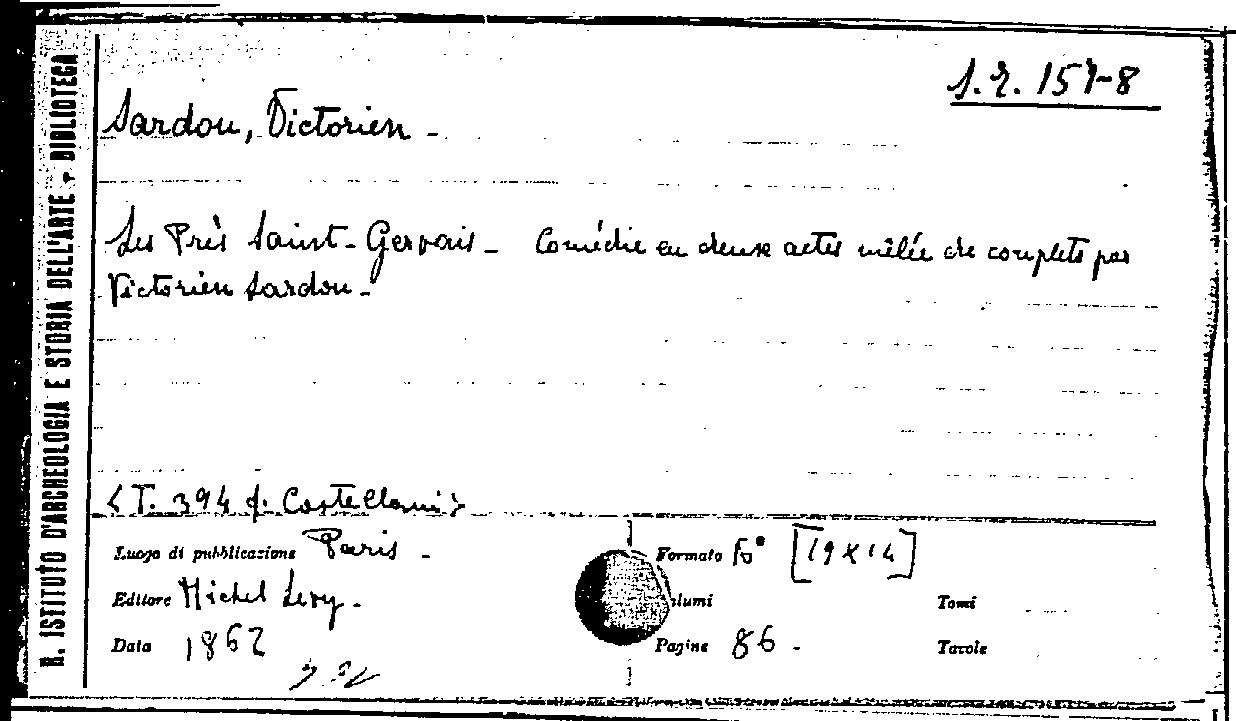 R. ISTITUTO D'ARCHEOLOGIA E STORIA DELL'ARTE - BIBLIOTECA
Sardou, Victorien -
Les Près Saint-Gervais - Comédie en deux actes mêlée de couplets par
Victorien Sardou -
<T. 394 f. Castellani>
Luogo di pubblicazione Paris -
Editore Michel Levy -
Data 1862
Formato [19 x 14]
lumi
Tomi
Pagine 86 -
Tavole